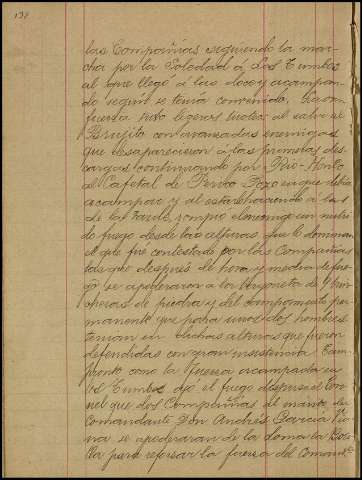 137
las Compañias siguiendo la mar-
cha por la Soledad á Los Tumbos
al que llegó á las doce y acampan-
do segun se tenia convenido. La
fuerza tuvo ligeros tiroteos al salir de
Brujito con avanzadas enemigas
que desaparecieron á las primeras des-
cargas continuando por Rio-Hondo
al Cafetal de Perico Pozo en que debia
acampar y al estar haciendo á las
de la tarde rompió el enemigo un nutri-
do fuego desde las alturas que lo dominan
el que fué contestado por las Compañias
las que después de hora y media de fue-
go se apoderaron á la bayoneta de trin-
cheras de piedra y del campamento per-
manente que para unos dos hombres
tenian en dichas alturas que fueron
defendidas con gran insistencia. Tan
pronto como la fuerza acampada en
Los Tumbos oyó el fuego dispuso el Coro-
nel que dos Compañias al mando del
Comandante Don Andrés Garcia
se apoderaran de la loma la
para reforzar la fuerza del Comand.te